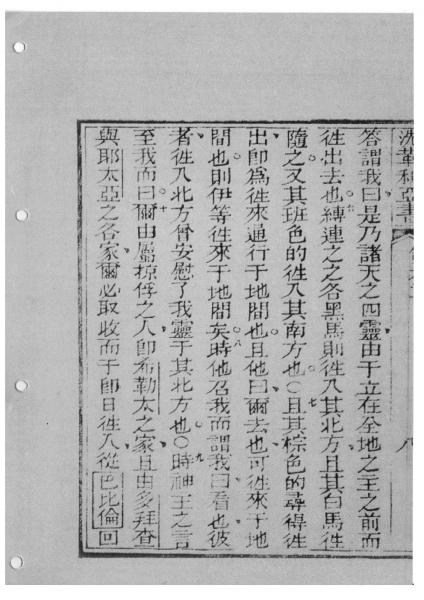 答謂我曰是乃諸天之四靈由于立在全地之主之前而
徃出去也六縛連之之各黑馬則徃入其北方且其白馬徃
隨之又其班色的徃入其南方也○七且其棕色的尋得徃
出卽為徃來通行于地間也且他曰爾去也可徃來于地
間也則伊等徃來于地間矣八時他召我而謂我曰看也彼
者徃入北方曾安慰了我靈于其北方也○九時神王之言
至我而曰十爾由屬掠俘之人卽希勒太之家且由多拜查
與耶太亞之各家爾必取收而于卽日徃入從巴比倫回